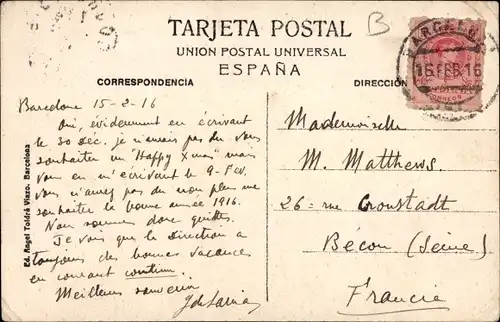 TARJETA POSTAL
UNION POSTAL UNIVERSAL
ESPAÑA
CORRESPONDENCIA
DIRECCION
B
16 FEB 16
CORREOS
Barcelone 15-2-16
Oui, évidemment en écrivant
le 30 déc. je n'aurais pas du vous
souhaiter un "Happy Xmas" mais
vous en m'écrivant le 9-Fev.
vous n'aurez pas du non plus me
souhaiter la bonne année 1916.
Nous sommes donc quittes.
Je vois que la direction a
toujours des bonnes vacances
en courant continu.
Meilleur souvenir
Mademoiselle
M. Matthews.
26 = rue Cronstadt
Bécon (Seine)
Francia
Ed. Angel Toldrá Viazo. Barcelona